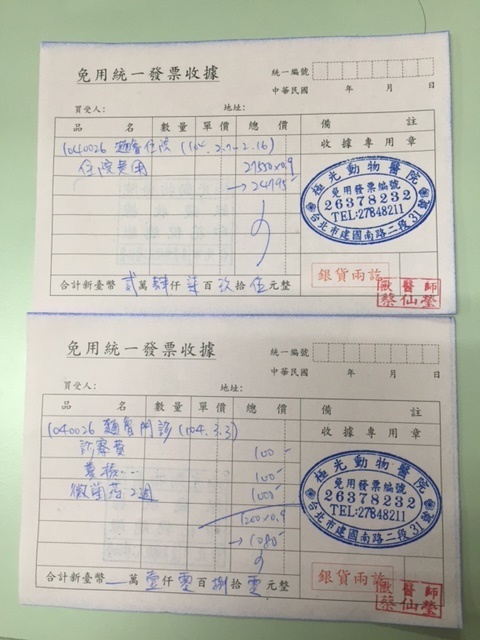 免用統一發票收據
統一編號
中華民國 年 月 日
買受人: 地址:
品名 數量 單價 總價 備註
收據專用章
1040026 麵包住院 (104.2.7-2.16)
住院費用 27550×0.9
→24795
極光動物醫院
免用發票編號
26378232
TEL:27848211
台北市建國南路二段31號
銀貨兩訖
獸醫師
蔡仙瑩
合計新臺幣 貳萬肆仟柒百玖拾伍元整
免用統一發票收據
統一編號
中華民國 年 月 日
買受人: 地址:
品名 數量 單價 總價 備註
收據專用章
1040026 麵包門診 (104.3.3)
診察費 100
100
2週
1200×0.9
→1080
極光動物醫院
免用發票編號
26378232
TEL:27848211
台北市建國南路二段31號
銀貨兩訖
獸醫師
蔡仙瑩
合計新臺幣 萬壹仟零百捌拾零元整